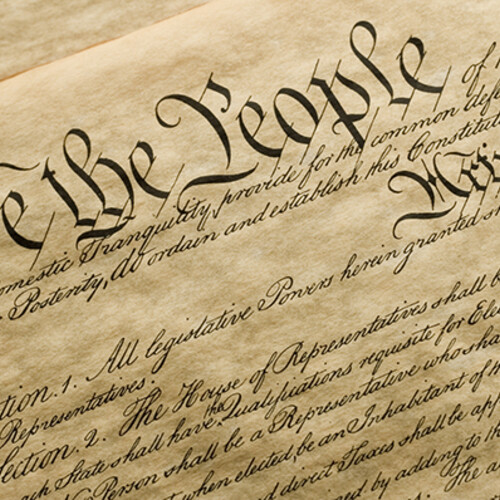 e the People of
omestic Tranquility, provide for the common defe
Posterity, do ordain and establish this Constitut
Arti
ction. 1. All legislative Powers herein granted s
Representatives.
Section. 2. The House of Representatives shall
ach State shall have the Qualifications requisite for Ele
No Person shall be a Representative who sha
when elected, be an Inhabitant of th
and direct Taxes shall be ap
by adding to th
The